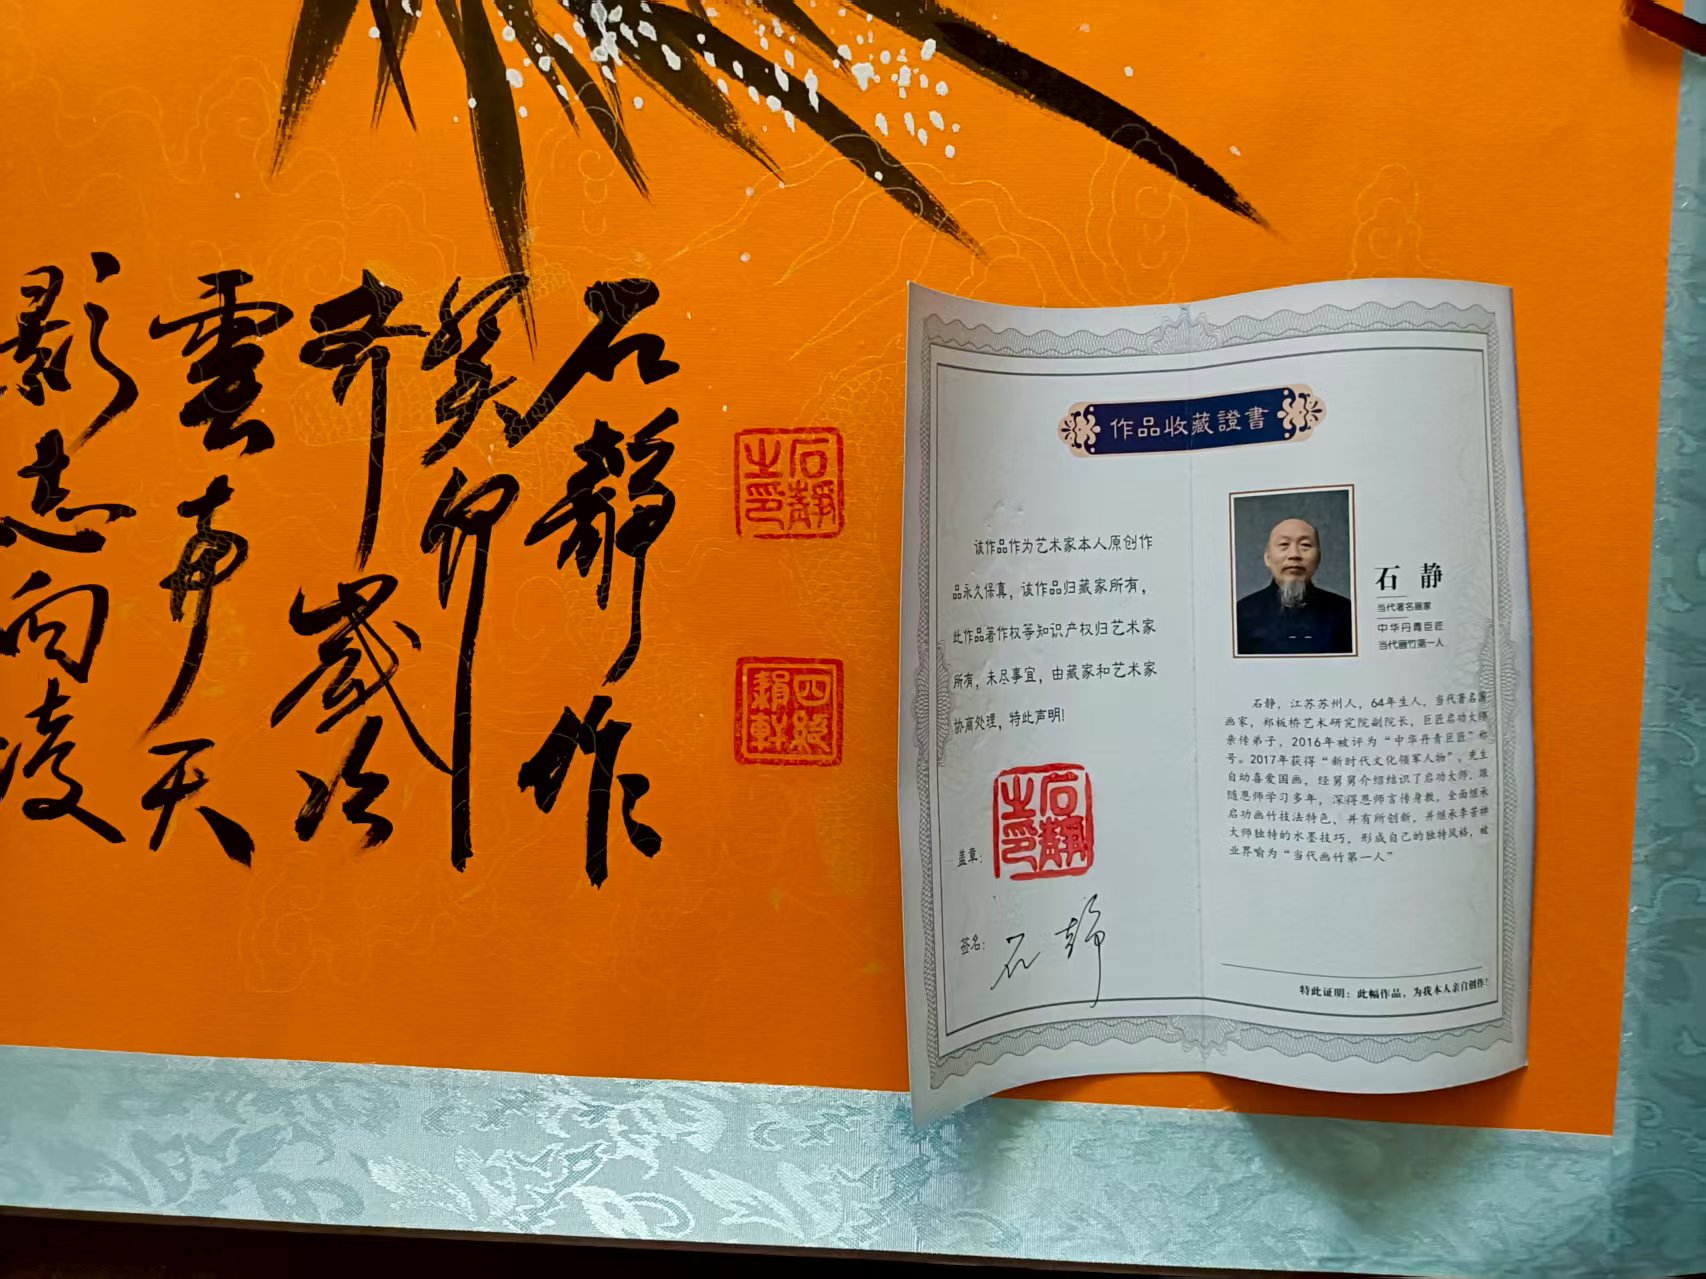 影志向凌
雲 天
歲冷
笑
石靜作
石靜之印
作品收藏證書
该作品作为艺术家本人原创作
品永久保真，该作品归藏家所有，
此作品著作权等知识产权归艺术家
所有，未尽事宜，由藏家和艺术家
协商处理，特此声明!
盖章:
石靜之印
签名:
石静
石 静
当代著名画家
中华丹青巨匠
当代画竹第一人
石静，江苏苏州人，64年生人，当代著名国
画家，郑板桥艺术研究院副院长，巨匠启功大师
亲传弟子，2016年被评为“中华丹青巨匠”称
号。2017年获得“新时代文化领军人物”，先生
自幼喜爱国画，经舅舅介绍结识了启功大师，跟
随恩师学习多年，深得恩师言传身教，全面继承
启功画竹技法特色，并有所创新，并继承李苦禅
大师独特的水墨技巧，形成自己的独特风格，被
业界喻为“当代画竹第一人”
特此证明：此幅作品、为我本人亲自创作